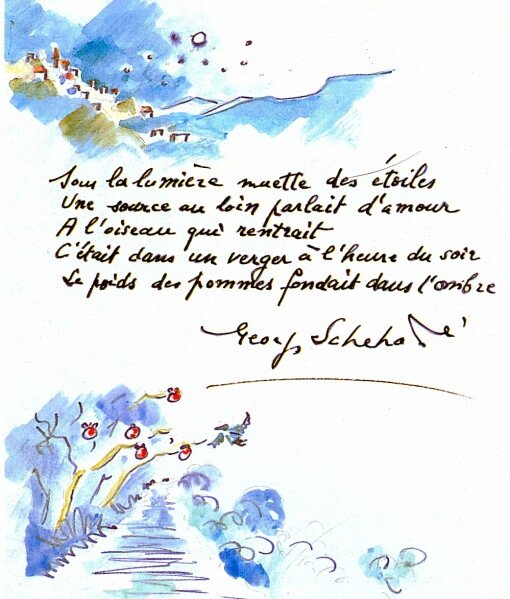 Sous la lumière muette des étoiles
Une source au loin parlait d'amour
A l'oiseau qui rentrait
C'était dans un verger à l'heure du soir
Le poids des pommes fondait dans l'ombre
Georges Schehadé